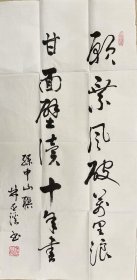 願乘風破萬里浪
甘面壁讀十年書
孫中山聯
林
書